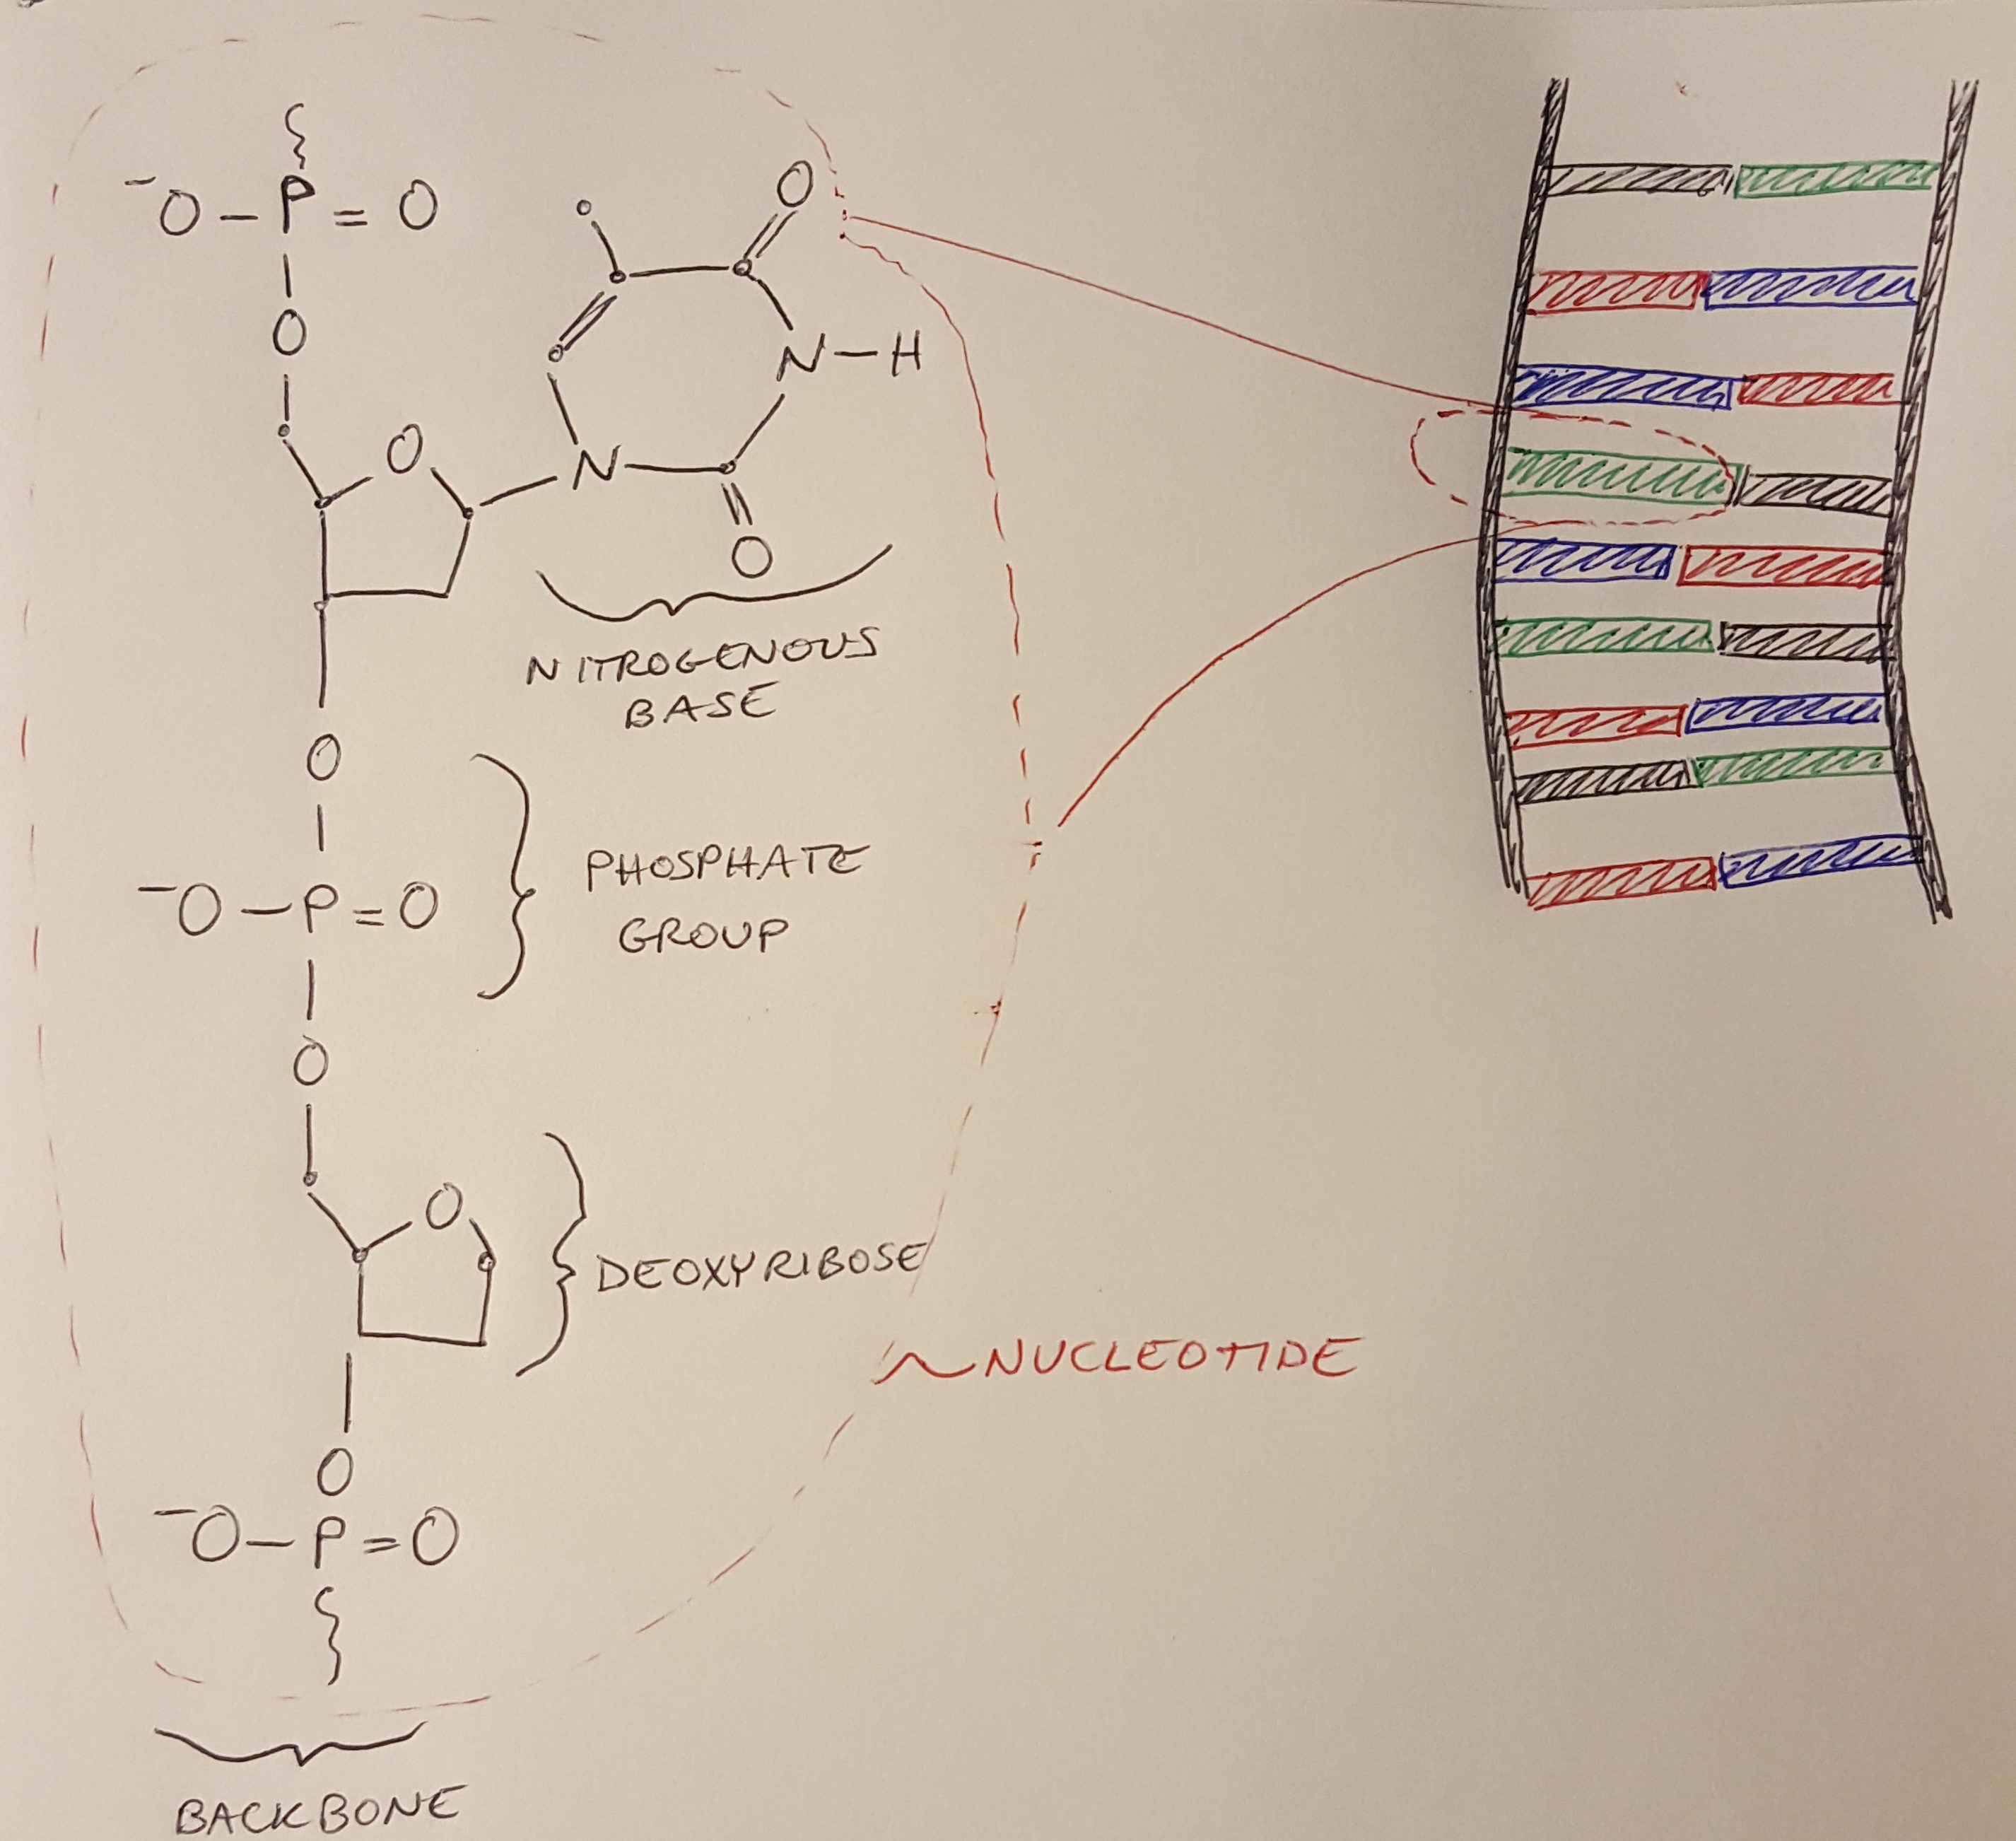 ⁻O–P=O
O
O
O
N–H
N
O
NITROGENOUS
BASE
O
PHOSPHATE
GROUP
⁻O–P=O
O
O
DEOXYRIBOSE
NUCLEOTIDE
O
⁻O–P=O
BACKBONE